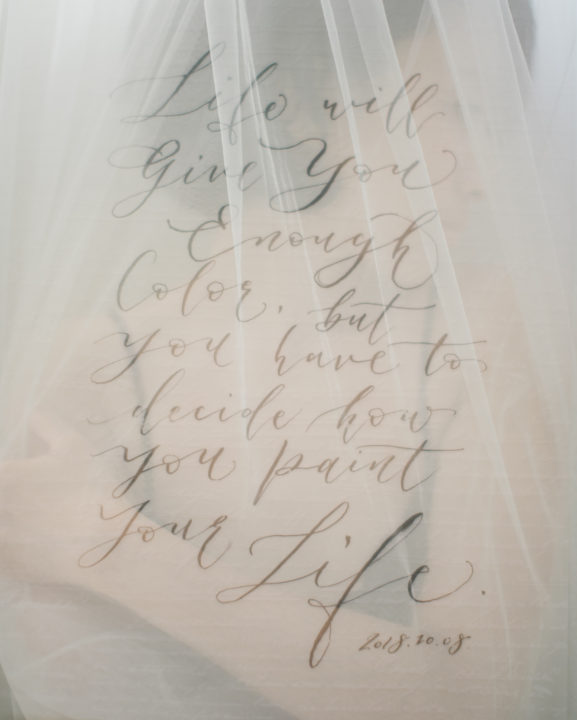 Life will
Give You
Enough
Color, but
you have to
decide how
you paint
your Life.
2018.10.08